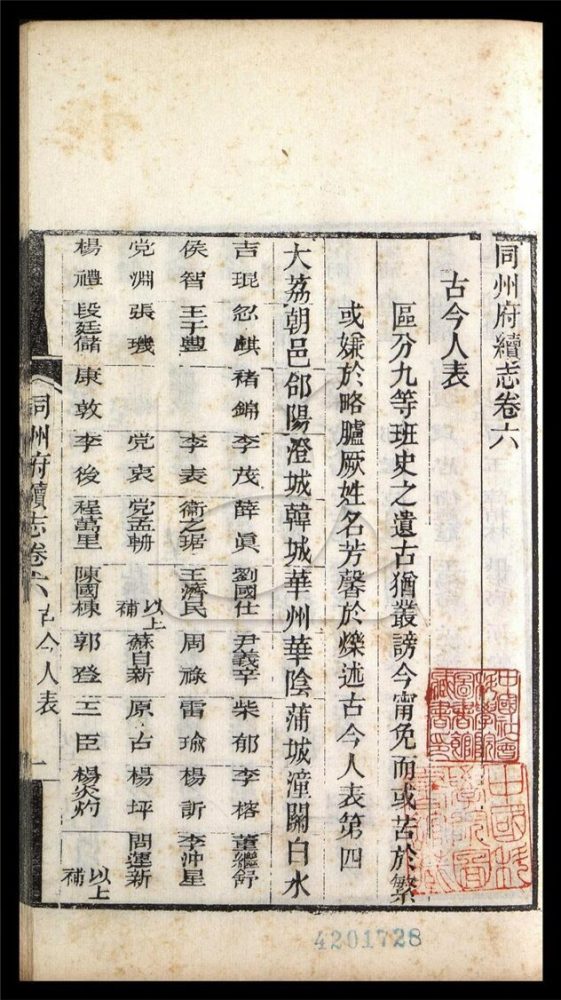 同州府續志卷六
古今人表
區分九等班史之遺古猶叢謗今甯免而或苦於繁
或嫌於略臚厥姓名芳馨於爍述古今人表第四
大荔朝邑郃陽澄城韓城華州華陰蒲城潼關白水
吉琨 忽麒 褚錦 李茂 薛眞 劉國仕 尹義辛 柴郁 李榕 董繼舒
侯智 王于豊 李表 衞之琚 王濟民 周祿 雷瑜 楊訢 李沖星
党淵 張璣 党衷 党孟輈 以上補 蘇自新 原古 楊坪 問運新
楊禮 段廷儲 康敦 李後 程萬里 陳國棟 郭登 王臣 楊炎灼 以上補
同州府續志 卷六 古今人表 一
中國社會科學院圖書館藏書印
4201728